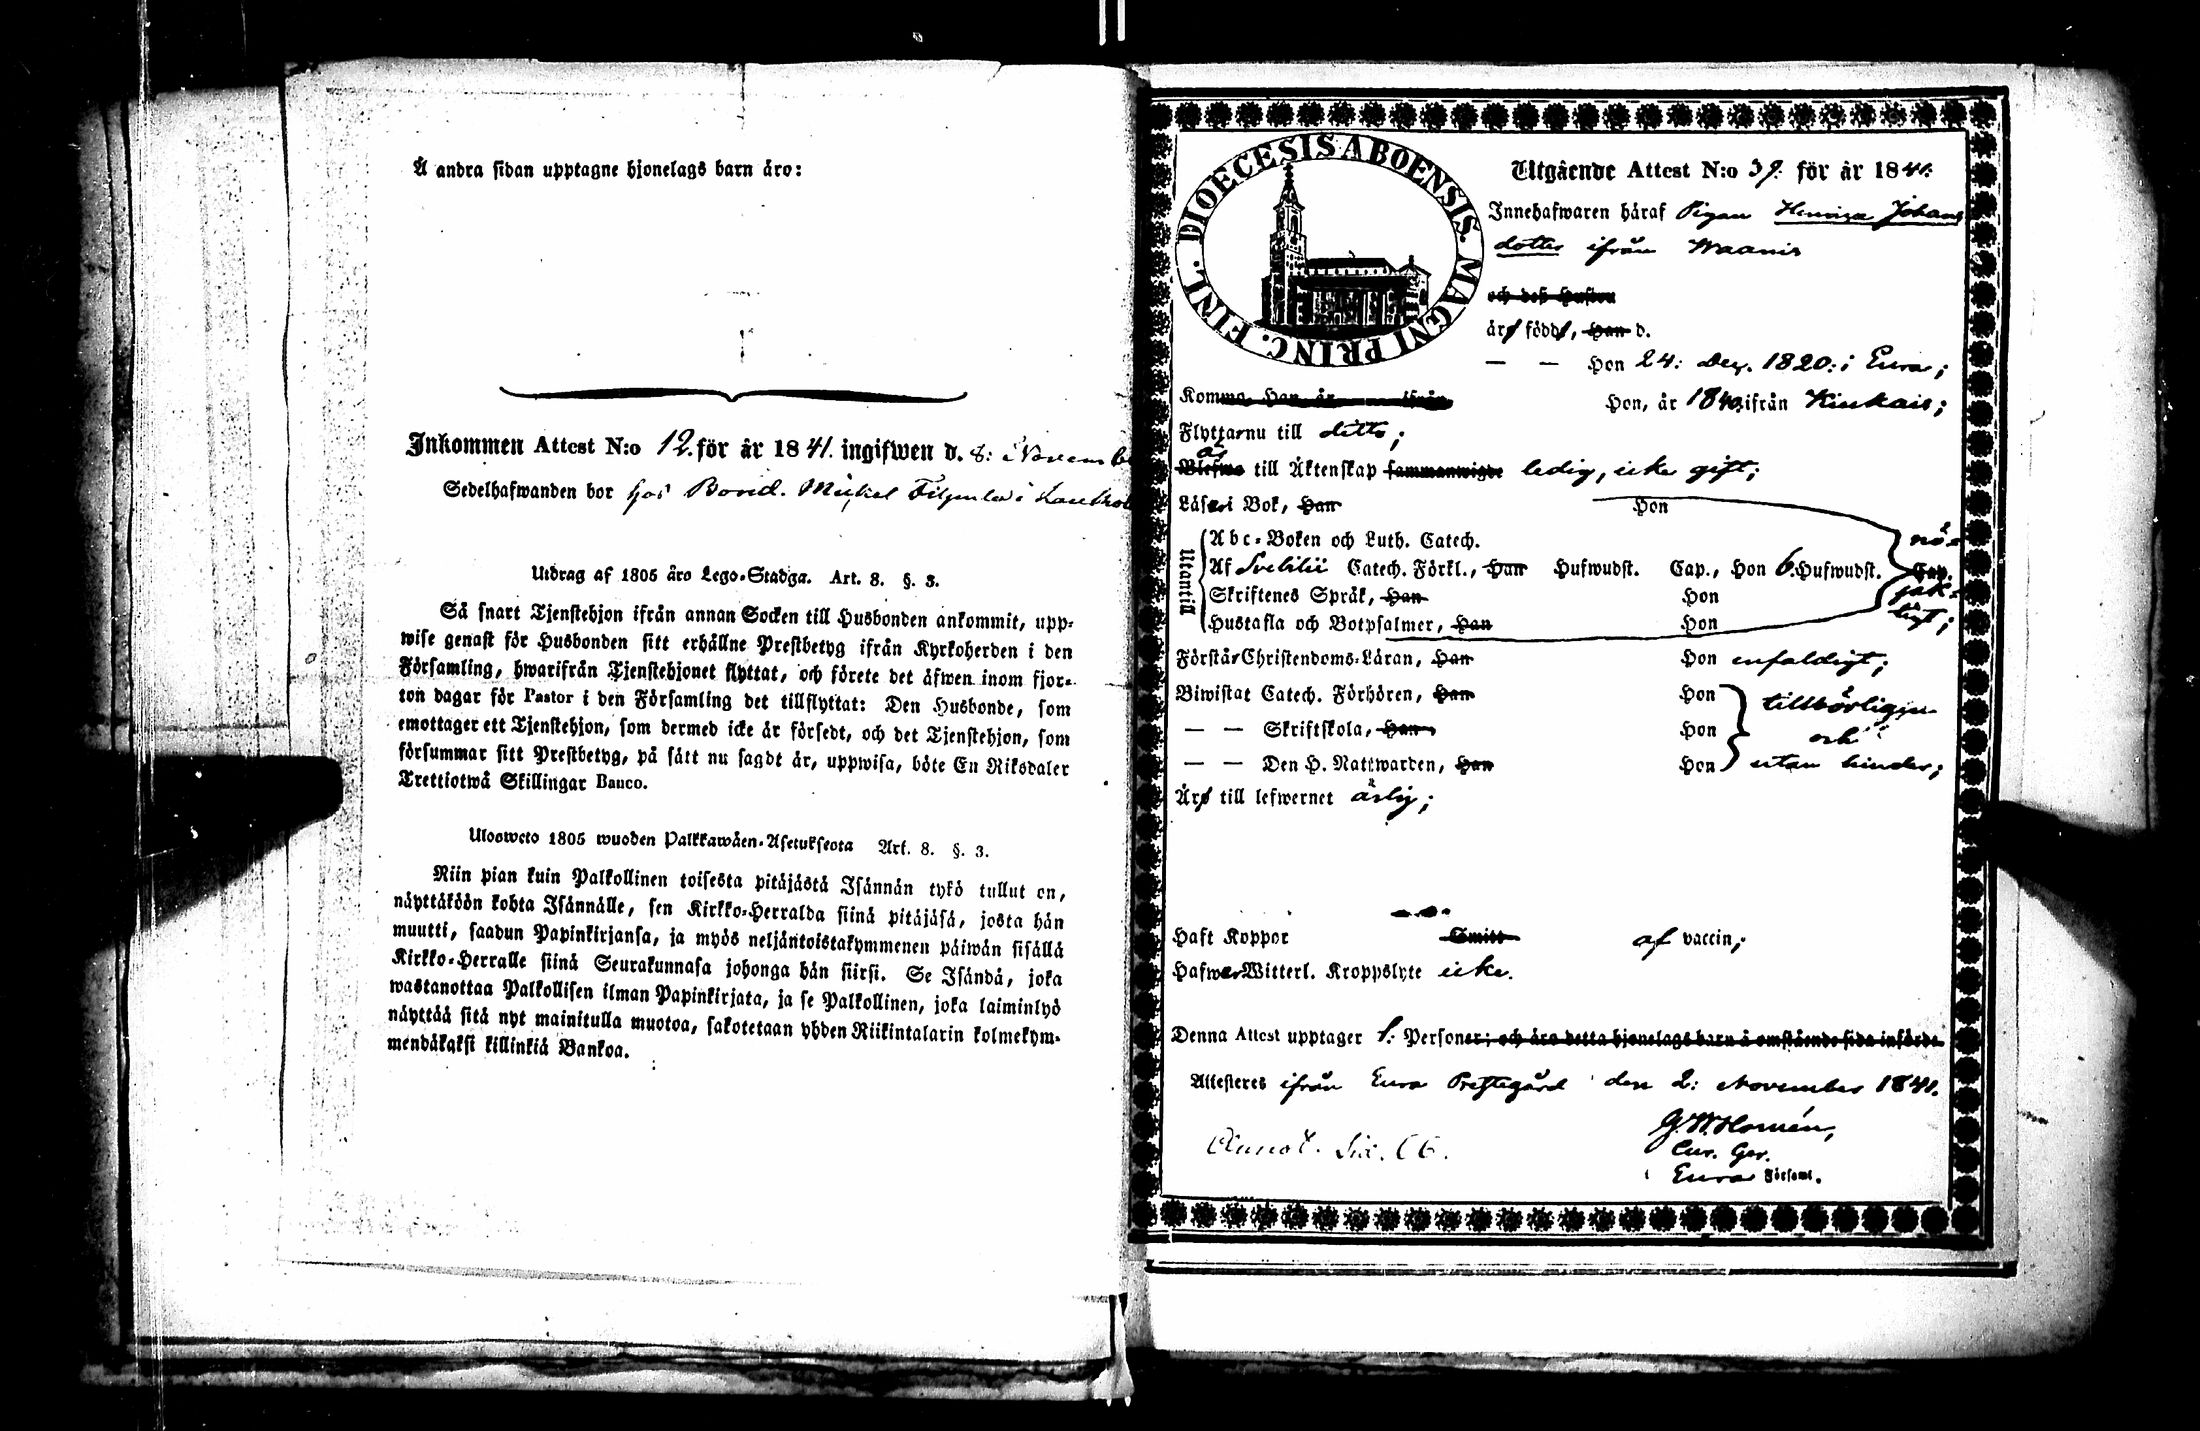 Å andra sidan upptagne hjonelags barn äro:
Inkommen Attest N:o 12. för år 1841. ingifwen d. 8: Novemb
Sedelhafwanden bor hos Bond. Mickel
Utdrag af 1805 åro Lego-Stadga. Art. 8. §. 3.
Så snart Tjenstehjon ifrån annan Socken till Husbonden ankommit, upp-
wise genast för Husbonden sitt erhållne Prestbetyg ifrån Kyrkoherden i den
Församling, hwarifrån Tjenstehjonet flyttat, och förete det äfwen inom fjor-
ton dagar för Pastor i den Församling det tillflyttat: Den Husbonde, som
emottager ett Tjenstehjon, som dermed icke är försedt, och det Tjenstehjon, som
försummar sitt Prestbetyg, på sätt nu sagdt är, uppwisa, böte En Riksdaler
Trettiotwå Skillingar Banco.
Uloswcto 1805 wuoden Palkkawäen-Asetuksesta Art. 8. §. 3.
Niin pian kuin Palkollinen toisesta pitäjästä Isännän tykö tullut on,
näyttäköön kohta Isännälle, sen Kirkko-Herralda siinä pitäjäsä, josta hän
muutti, saadun Papinkirjansa, ja myös neljäntoistakymmenen päiwän sisällä
Kirkko-Herralle siinä Seurakunnasa johonga hän siirsi. Se Isändä, joka
wastanottaa Palkollisen ilman Papinkirjata, ja se Palkollinen, joka laiminlyö
näyttää sitä nyt mainitulla muotoa, sakotetaan yhden Riikintalarin kolmekym-
mendäkaksi killinkiä Bankoa.
DIOECESIS ABOENSIS. MAGNI PRINC. FINL.
Utgående Attest N:o 39. för år 1841.
Innehafwaren häraf Pigan Henrica Johans
dotter ifrån Waanis
och dess Hustru
äro född, Han d.
— — Hon 24: Dec. 1820: i Eura;
Komma, Han år ifrån Hon, år 1840. ifrån Kiukais;
Flyttar nu till ditto;
är
Blefwo till Äktenskap sammanwigde ledig, icke gift;
Läser i Bok, Han Hon nö-
Utantill
Abc-Boken och Luth. Catech.
Af Svebilii Catech. Förkl., Han Hufwudst. Cap., Hon 6. Hufwudst. Cap.
Skriftenes Språk, Han Hon jak-
Hustafla och Botpsalmer, Han Hon ligt;
Förstår Christendoms-Läran, Han Hon enfaldigt;
Biwistat Catech. Förhören, Han Hon tillbörligen
— — Skriftskola, Han Hon och
— — Den H. Nattwarden, Han Hon utan hinder;
Äro till lefwernet ärlig;
Haft Koppor Smitt af vaccin;
Hafwer Witterl. Kroppslyte icke.
Denna Attest upptager 1. Personer; och äro detta hjonelags barn å omstående sida införde.
Attesteres ifrån Eura Prestegård den 2: November 1841.
G. W. Homén,
Annot. Sid. 66.
Cur. Ger.
Eura Församl.